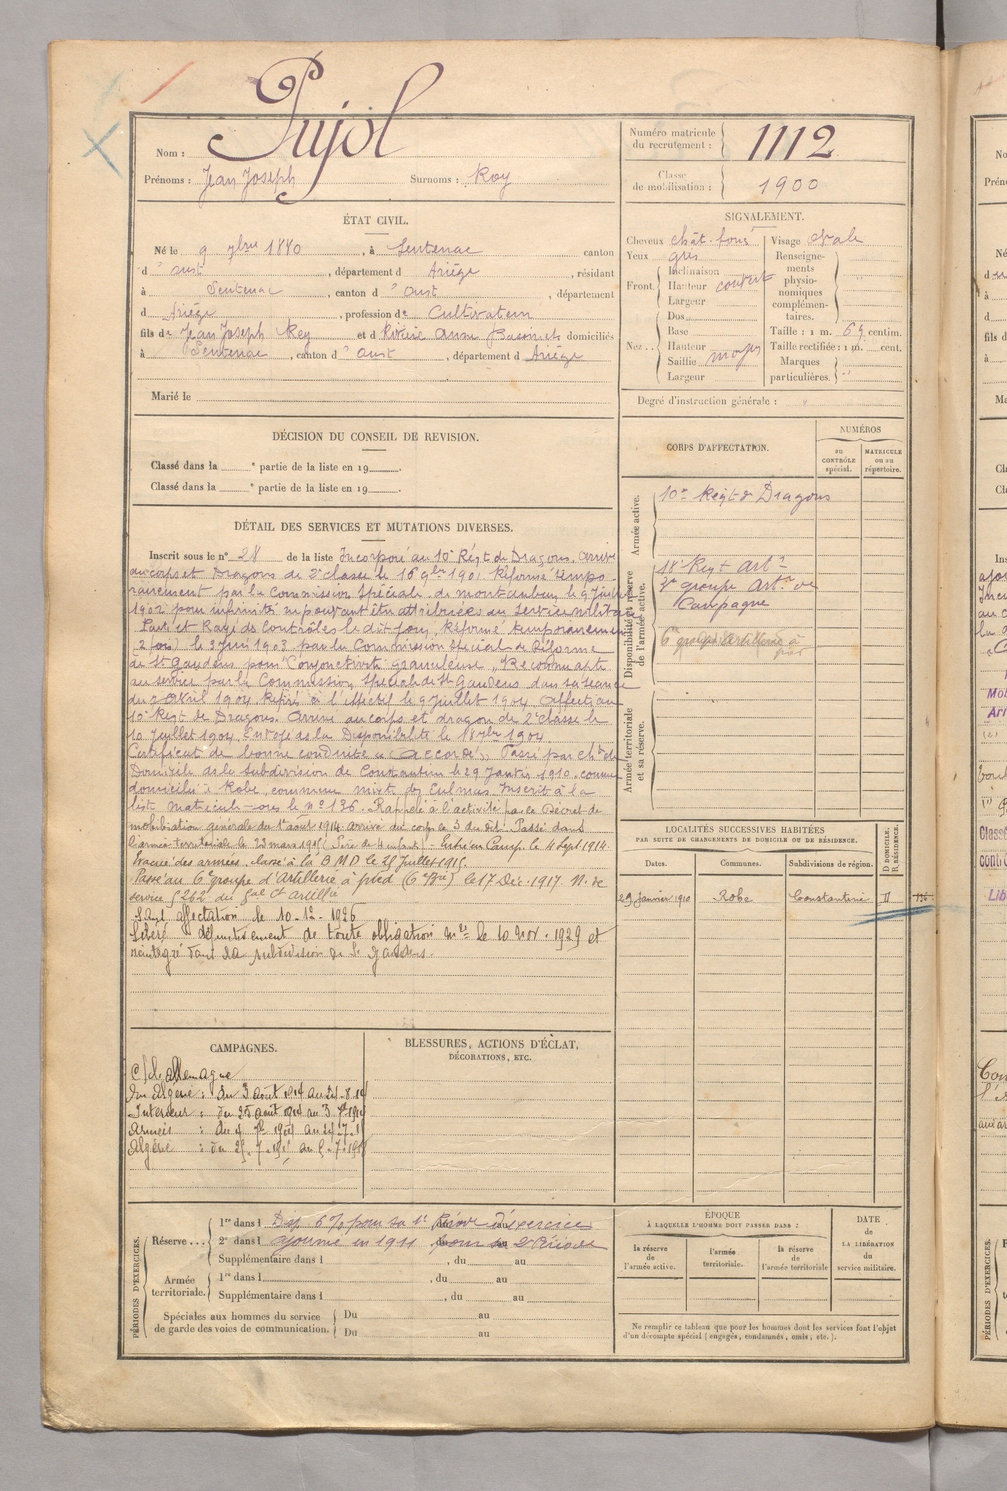 Nom : Pujol
Prénoms : Jean Joseph Surnoms : Rey
Numéro matricule du recrutement : 1112
Classe de mobilisation : 1900
ÉTAT CIVIL.
Né le 9 7bre 1880, à Sentenac canton
d' Oust, département d Ariège, résidant
à Sentenac, canton d' Oust, département
d Ariège, profession de Cultivateur
fils de Jean Joseph Rey et d domiciliés
à Sentenac, canton d' Oust, département d Ariège
Marié le
SIGNALEMENT.
Cheveux chât. foncé Visage Ovale
Yeux gris Renseignements physionomiques complémentaires.
Front. Inclinaison
Hauteur couvert
Largeur
Nez.. Dos
Base
Hauteur moyen
Saillie
Largeur
Taille : 1 m. 69 centim.
Taille rectifiée : 1 m. cent.
Marques particulières.
Degré d'instruction générale :
DÉCISION DU CONSEIL DE REVISION.
Classé dans la e partie de la liste en 19 .
Classé dans la e partie de la liste en 19 .
CORPS D'AFFECTATION.
NUMÉROS
au CONTRÔLE spécial.
MATRICULE ou au répertoire.
Armée active.
10e Régt de Dragons
Disponibilité et réserve de l'armée active.
18e Regt Artie
2e groupe Artie de
Campagne
6e groupe d'artillerie à
pied
Armée territoriale et sa réserve.
DÉTAIL DES SERVICES ET MUTATIONS DIVERSES.
Inscrit sous le n° 28 de la liste Incorporé au 10e Régt de Dragons. Arrivé
au corps et Dragons de 2e classe le 16 9bre 1901. Réformé tempo-
rairement par la Commission Spéciale de Montauban le 9 Juillet
1902 pour infirmité ne pouvant être attribuée au service militaire
Parti et Rayé des Contrôles le dit jour. Réformé temporairement
2 (fois) le 3 Juin 1903 par la Commission Spéciale de Réforme
de St Gaudens pour "Conjonctivite granuleuse". Reconnu apte
au service par la Commission Spéciale de St Gaudens dans sa séance
du 2 Avril 1904 à l'effectif le 9 juillet 1904 Affecté au
10e Régt de Dragons. Arrivé au corps et dragon de 2e classe le
10 Juillet 1904. Envoyé ds la Disponibilité le 18 7bre 1904.
Certificat de bonne conduite "Accordé". Passé par cht de
Domicile ds la Subdivision de Constantine le 29 Janvier 1910. comme
domicilié à Robe, commune mixte des Eulmas. Inscrit à la
liste matricule sous le n° 136. Rappelé à l'activité par le Décret de
mobilisation générale du 1er août 1914. arrivé au corps le 3 du dit. Passé dans
l'armée territoriale le 23 mars 1915 (Père de enfants). - Entré en Camp. le 4 Sept 1914.
Evacué des armées. classé à la B.M.D le 25 juillet 1915.
Passé au 6e groupe d'Artillerie à pied (6e Bie) le 17 Déc. 1917. N. de
service § 262 du Gal Ct Artillie
Sans affectation le 10-12-1926
Libéré définitivement de toute obligation mre le 10 Nov. 1929 et
réintégré dans la subdivision de St Gaudens.
LOCALITÉS SUCCESSIVES HABITÉES
PAR SUITE DE CHANGEMENTS DE DOMICILE OU DE RÉSIDENCE.
Dates. Communes. Subdivisions de région. D DOMICILE. R. RÉSIDENCE.
29 Janvier 1910 Robe Constantine D 136
CAMPAGNES.
C/ l'Allemagne
En Algérie : du 3 août 1914 au 24-8-14
Intérieur : du 25 août 1914 au 3 7bre 1914
Armées : du 4 7bre 1914 au 24-7-15
Algérie : du 25-7-1915 au
BLESSURES, ACTIONS D'ÉCLAT,
DÉCORATIONS, ETC.
PÉRIODES D'EXERCICES.
Réserve... 1re dans l Disp. pour sa 1re Période d'exercice
2e dans l ajourné en 1911 pour sa 2e Période
Supplémentaire dans l , du au
Armée territoriale. 1re dans l , du au
Supplémentaire dans l , du au
Spéciales aux hommes du service de garde des voies de communication. Du au
Du au
ÉPOQUE
À LAQUELLE L'HOMME DOIT PASSER DANS :
la réserve de l'armée active.
l'armée territoriale.
la réserve de l'armée territoriale
DATE DE LA LIBÉRATION du service militaire.
Ne remplir ce tableau que pour les hommes dont les services font l'objet
d'un décompte spécial (engagés, condamnés, omis, etc.).